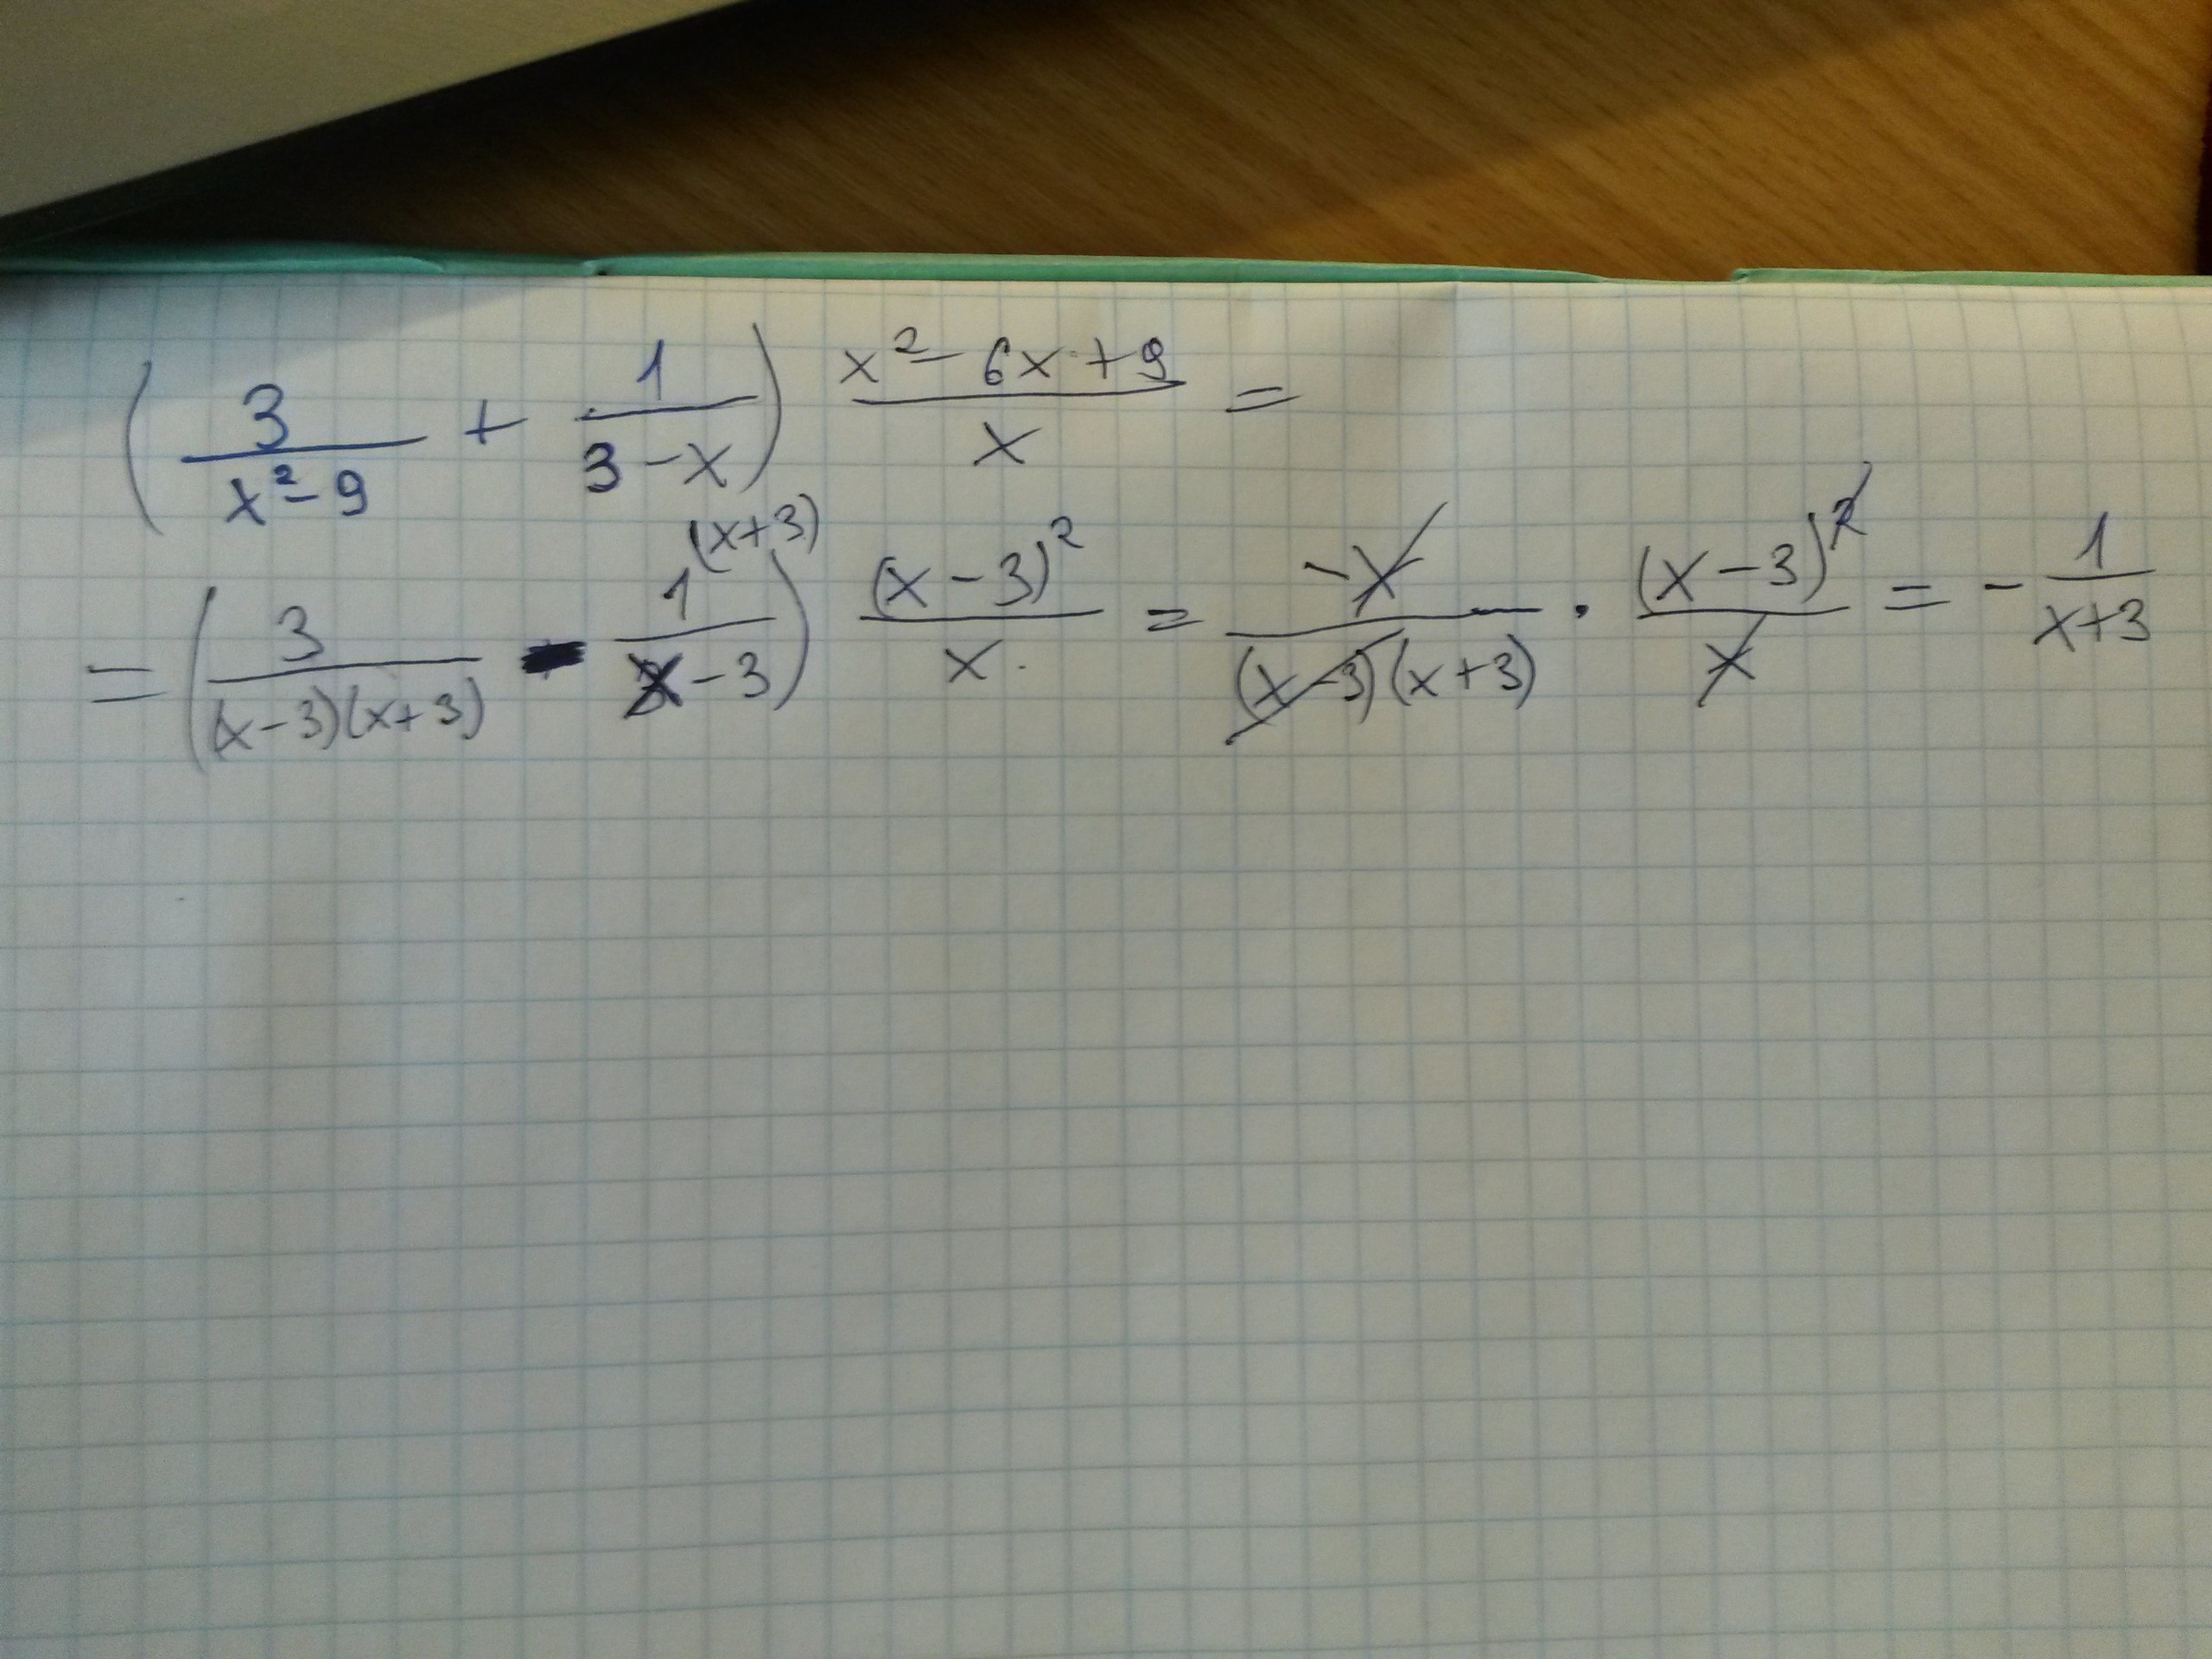 (3/(x²-9) + 1/(3-x)) (x²-6x+9)/x =
= (3/((x-3)(x+3)) - 1^(x+3)/(x-3)) (x-3)²/x = -x/((x-3)(x+3)) · (x-3)²/x = - 1/(x+3)